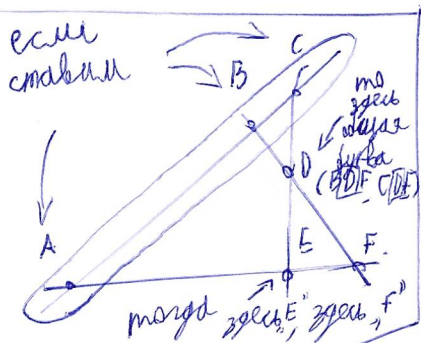 если
ставим
C
B
то
здесь
общая
буква
D
(BDF, CDE)
A
E
F
тогда здесь „E", здесь „F"